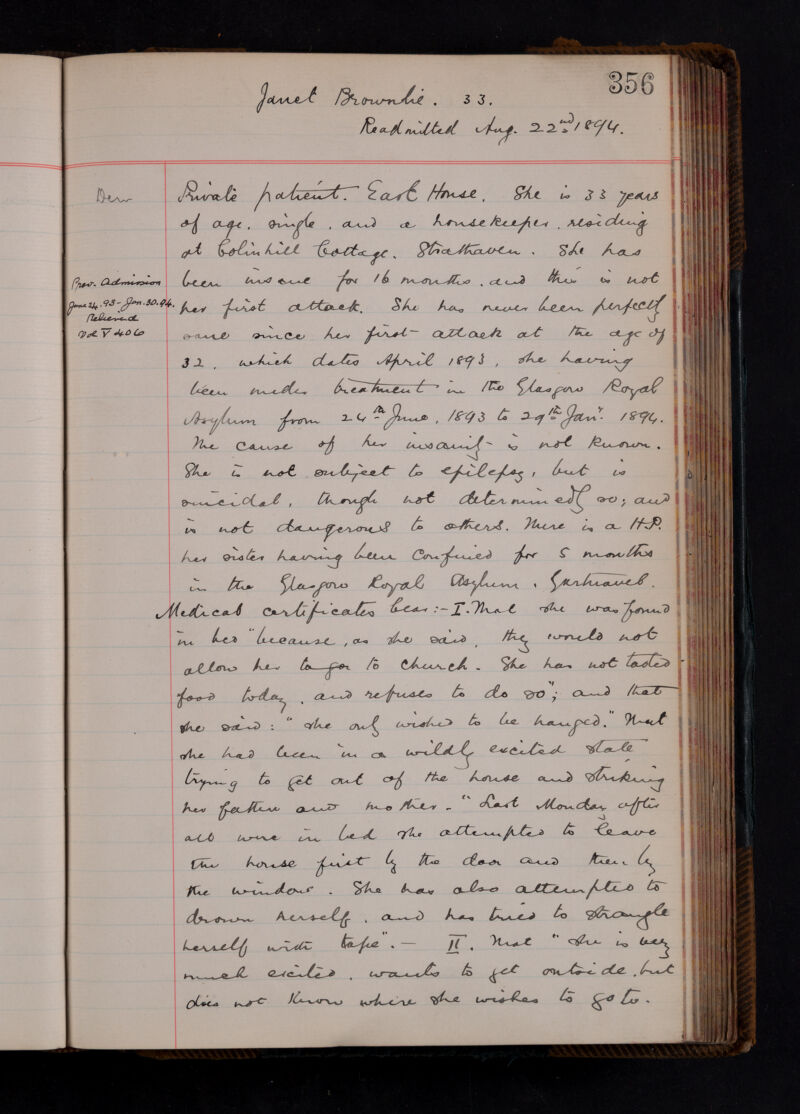 356
Janet Brownlie. 33.
Readmitted Aug. 22nd 1894.
Private patient. East House. She is 33 years
of age, single, and a housekeeper, residing
at Colinhill Cottage, Strathaven. She has
Prev. Admission
been insane for 16 months, and this is not
June 24. 93 - Jan. 30. 94.
her first attack. She has never been perfectly
Relieved
Vol V 406
sane since her first attack at the age of
32, which dates April 1893, she having
been under treatment in the Glasgow Royal
Asylum from 24th June, 1893 to 29th Jany. 1894.
The cause of her insanity is not known.
She is not subject to epilepsy, but is
suicidal, though not determinedly so; and
is not dangerous to others. There is a H.P.
her sister having been confined for 5 months
in the Glasgow Royal Asylum, Gartnavel.
Medical certificates bear:- I. That she was found
in bed "because, as she said, they would not
allow her to go to church. She has not tasted
food today, and refuses to do so"; and that
she said: "she only wished to be hanged." That
she had been "in a wildly excited state
trying to get out of the house and striking
her father and mother." "Last Monday after
all were in bed she attempted to leave
the house first by the door and then by
the window. She has also attempted to
drown herself, and has tried to strangle
herself with tape". — II. That "she is very
much excited, wants to get outside, but
does not know where she wishes to go to.